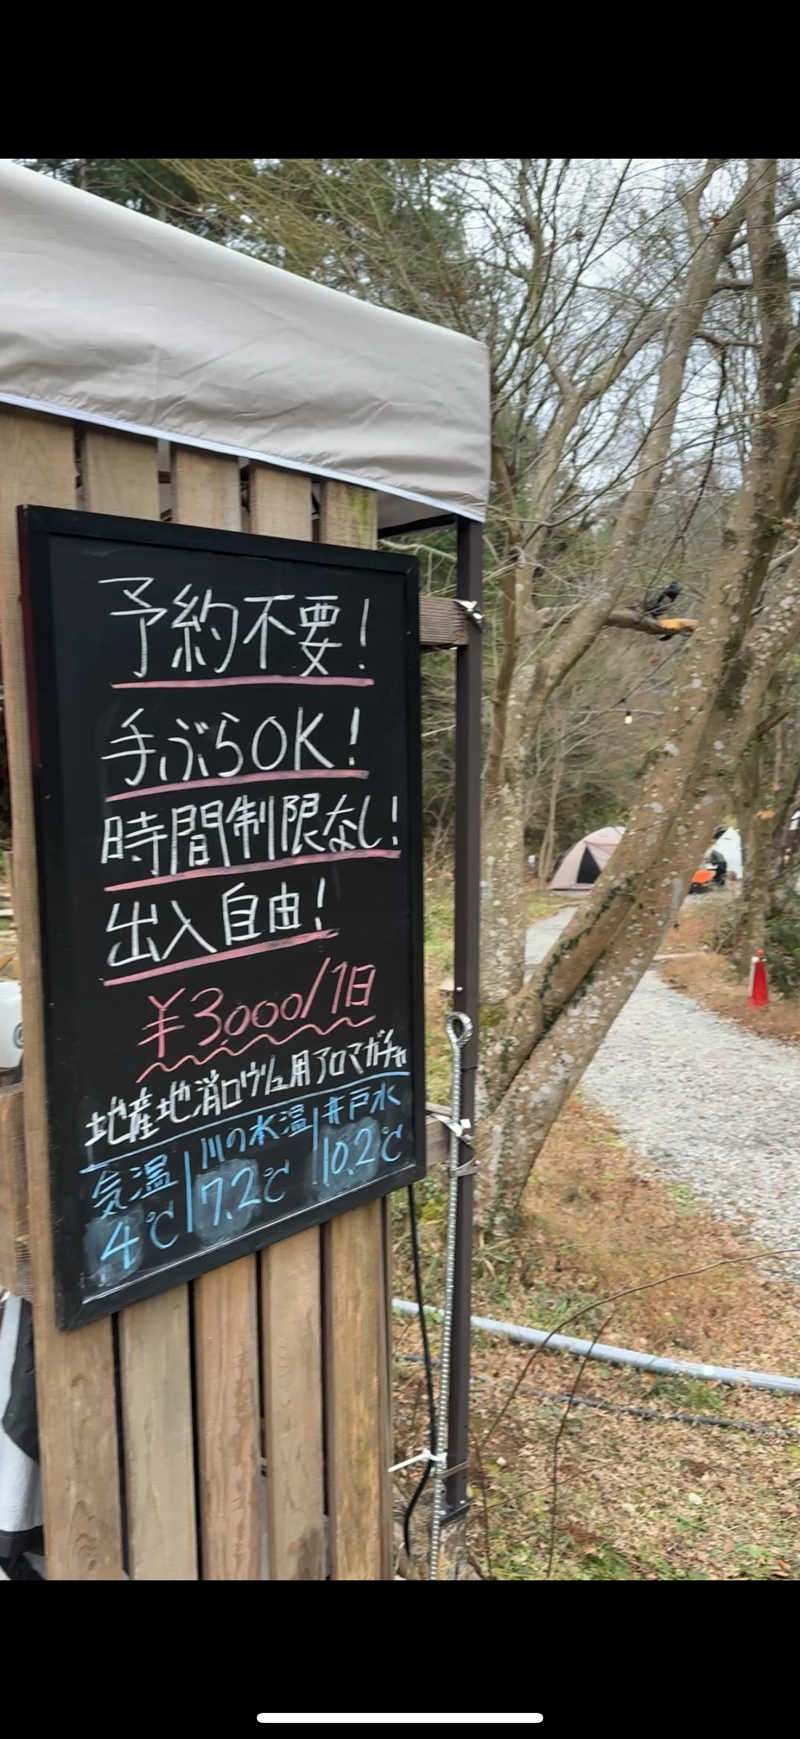 予約不要！
手ぶらOK！
時間制限なし！
出入自由！
¥3,000/1日
地産地消ロウリュ用アロマガチャ
気温 | 川の水温 | 井戸水
4℃ | 7.2℃ | 10.2℃